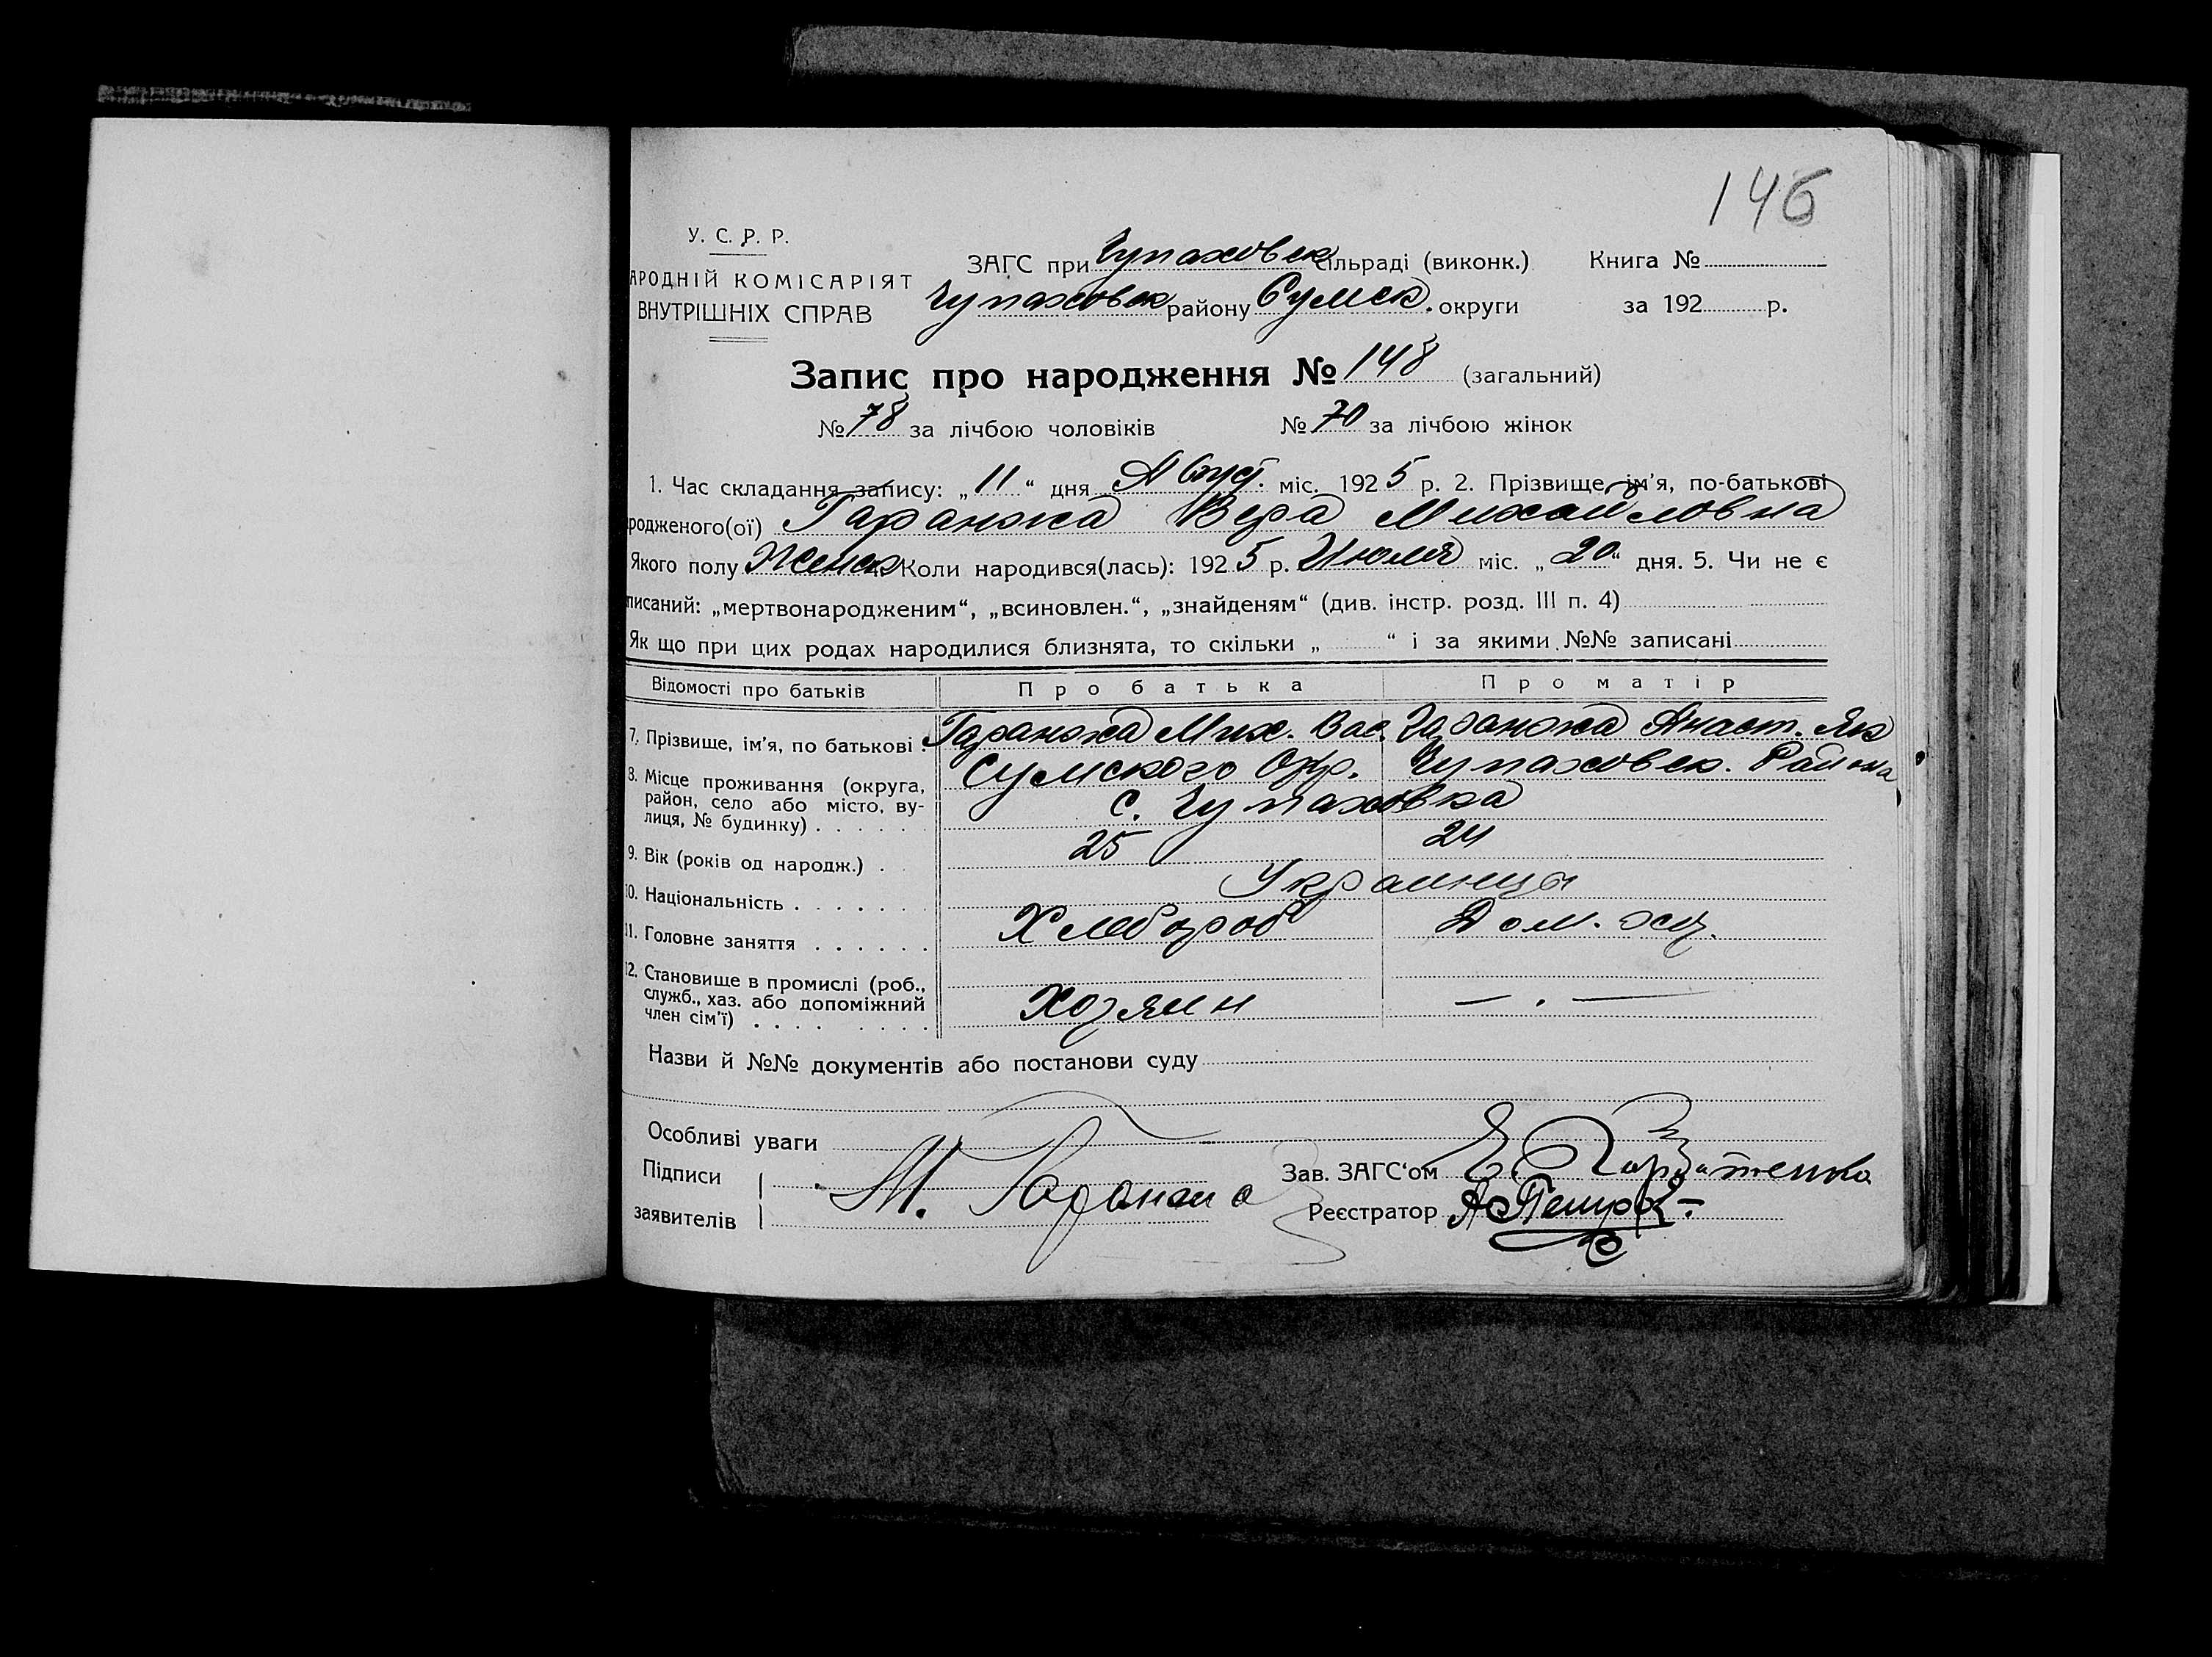 146
У. С. Р. Р.
АРОДНІЙ КОМІСАРІЯТ
ВНУТРІШНІХ СПРАВ
ЗАГС при Чупаховск сільраді (виконк.) Книга №
Чупаховск району Сумск. округи за 192 р.
Запис про народження № 148 (загальний)
№ 78 за лічбою чоловіків № 70 за лічбою жінок
1. Час складання запису: „11“ дня Август. міс. 1925 р. 2. Прізвище, ім'я, по-батькові
родженого(ої) Гаранжа Вера Михайловна
Якого полу Женск Коли народився(лась): 1925 р. Июля міс. „20“ дня. 5. Чи не є
писаний: „мертвонародженим“, „всиновлен.“, „знайденям“ (див. інстр. розд. III п. 4)
Як що при цих родах народилися близнята, то скільки „ “ і за якими №№ записані
Відомості про батьків Про батька Про матір
7. Прізвище, ім'я, по батькові . Гаранжа Мих. Вас. Гаранжа Анаст. Як
8. Місце проживання (округа, район, село або місто, вулиця, № будинку) . . . . . Сумского Окр. Чупаховск. Района
с. Чупаховка
9. Вік (років од народж.) . 25 24
10. Національність . . . . . . . Украинцы
11. Головне заняття . . . . . . Хлебороб Дом. хоз.
12. Становище в промислі (роб., служб., хаз. або допоміжний член сім'ї) . . . . . . . . Хозяин — . —
Назви й №№ документів або постанови суду
Особливі уваги
Підписи заявителів М. Гаранжа
Зав. ЗАГС'ом
Реєстратор